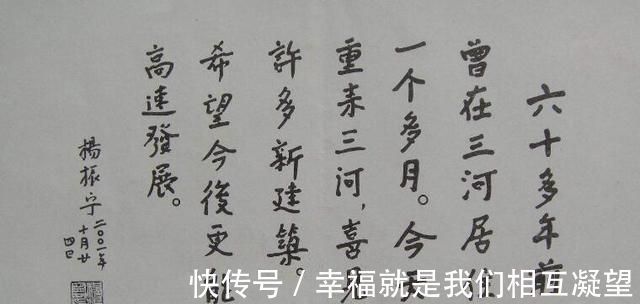 六十多年前
曾在三河居住
一个多月。今
重来三河，喜見
許多新建築。
希望今後更能
高速發展。
楊振宁
二〇〇一年
十月廿
四日
快传号 / 幸福就是我们相互凝望